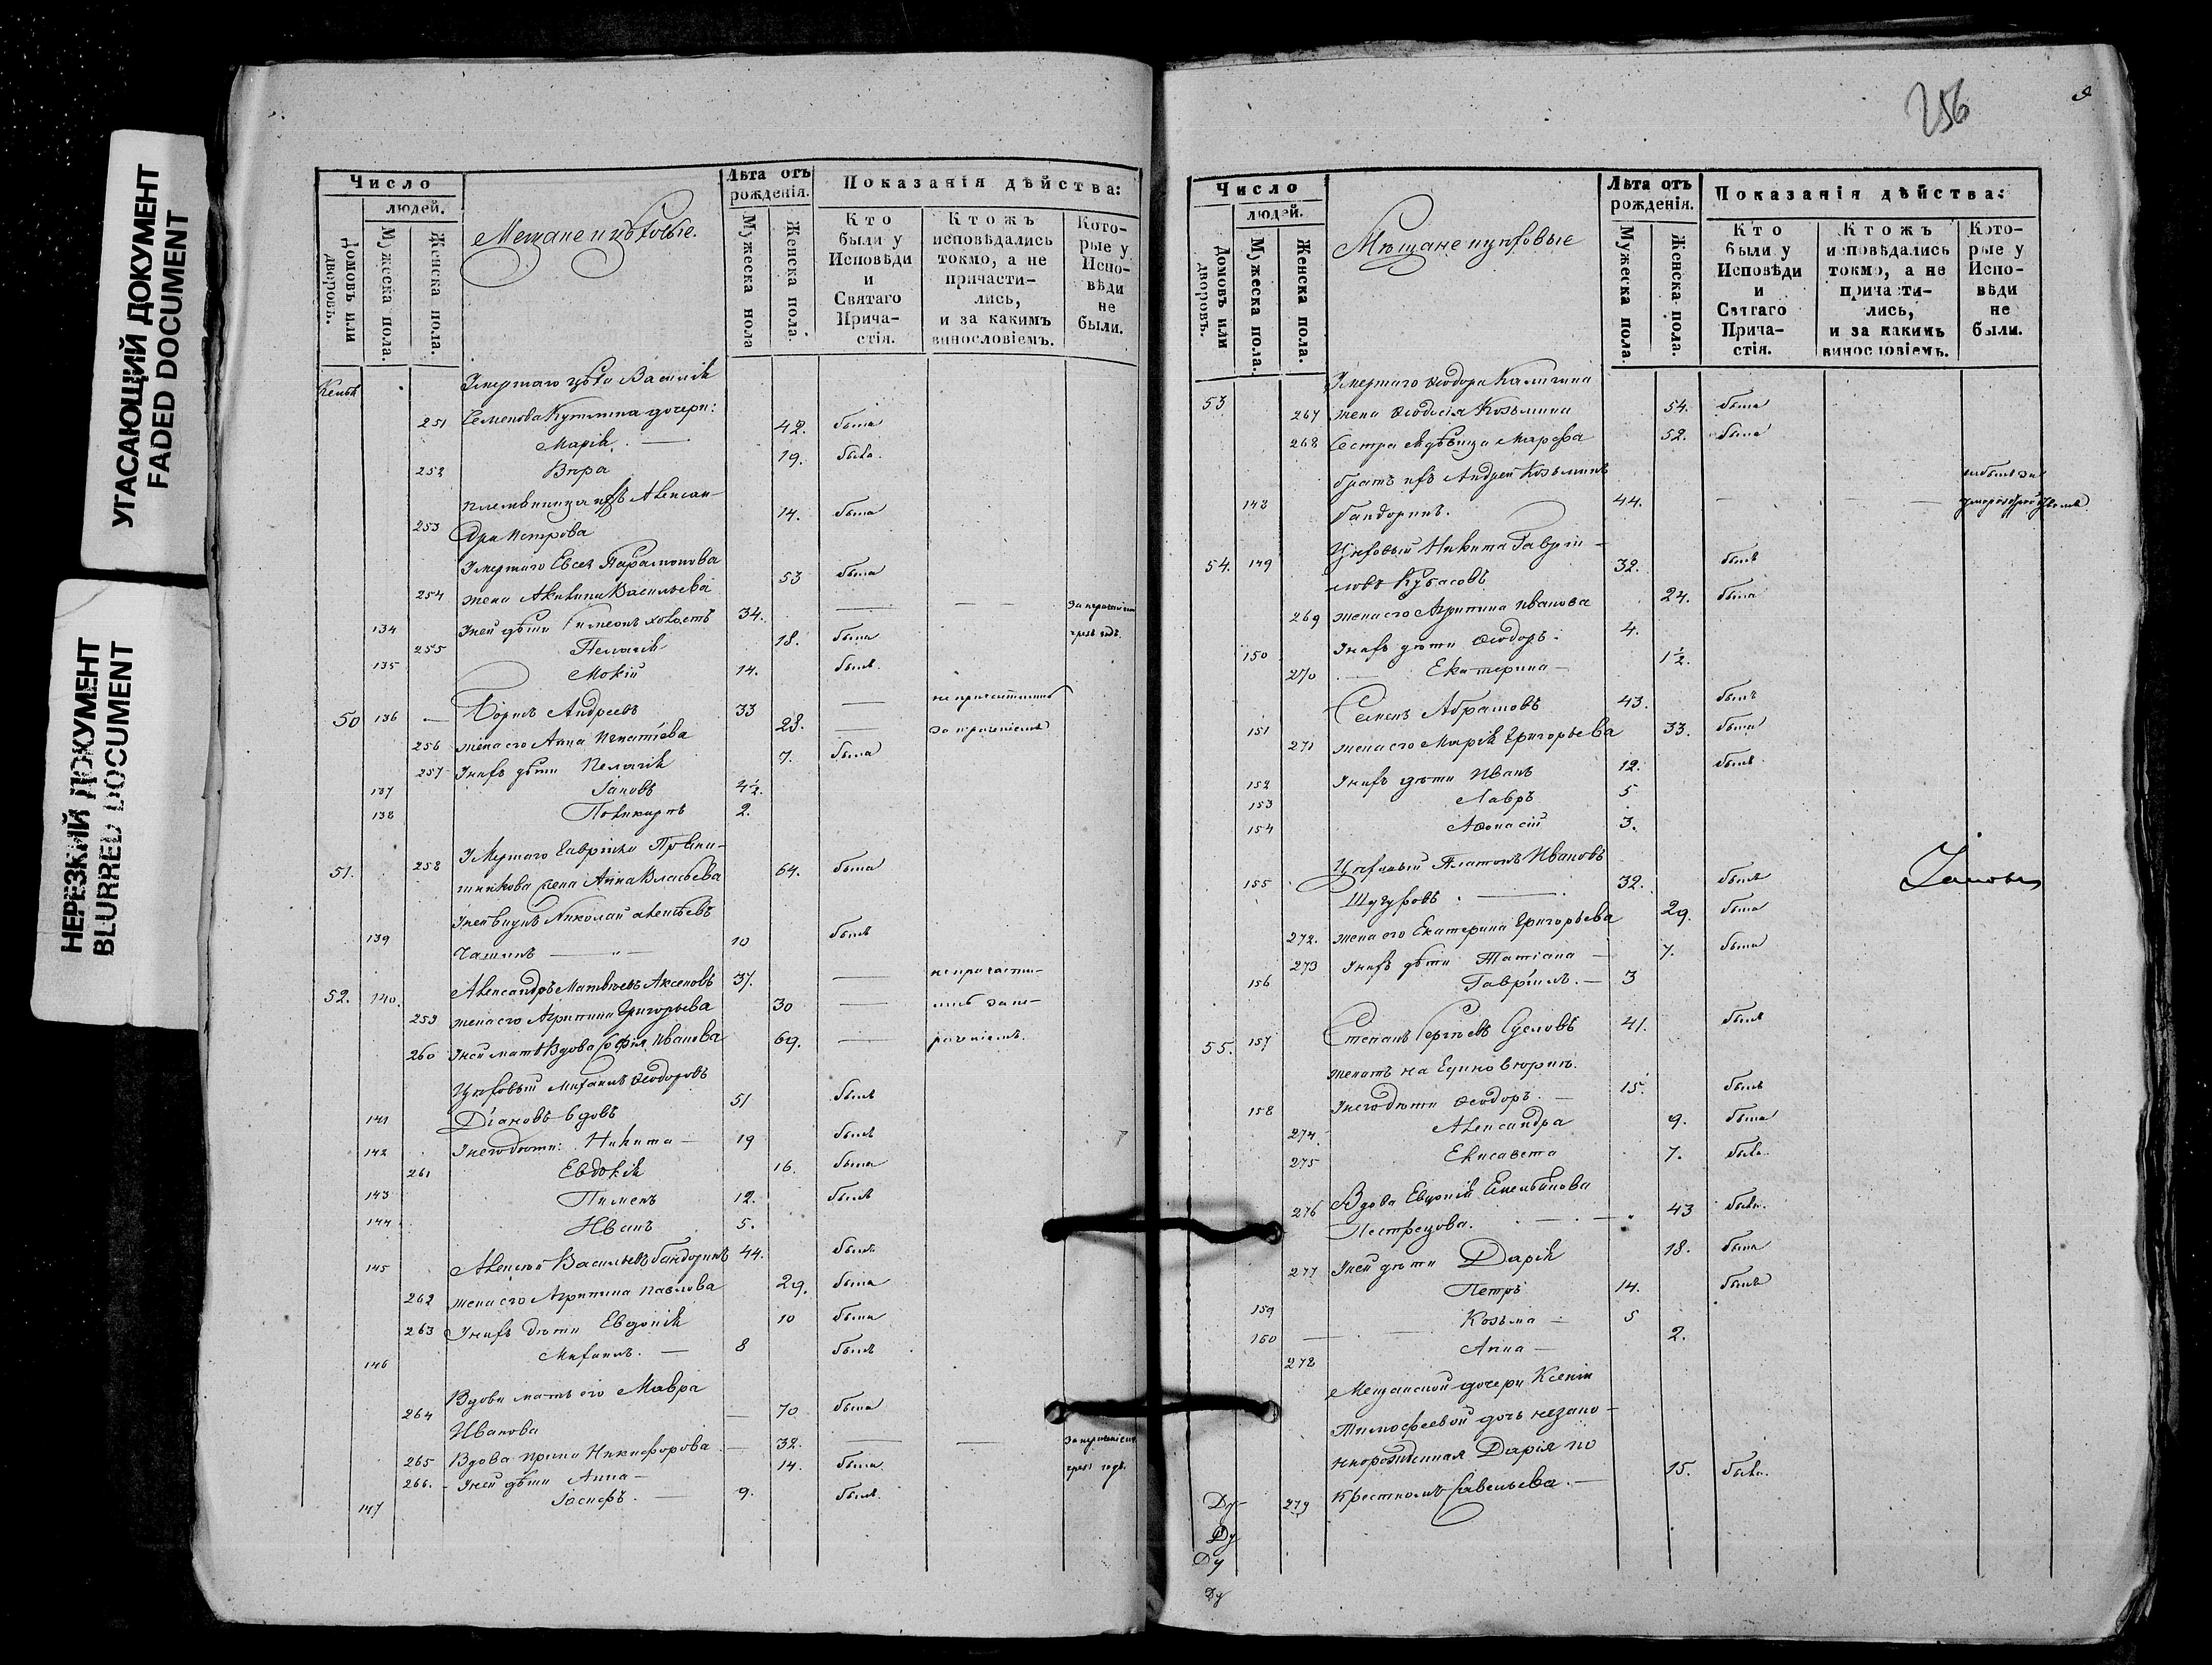 УГАСАЮЩИЙ ДОКУМЕНТ
FADED DOCUMENT
НЕРЕЗКИЙ ДОКУМЕНТ
BLURRED DOCUMENT
Число
людей.
Домовъ или дворовъ.
Мужеска пола.
Женска пола.
Мещане и цѣховые.
Лѣта отъ рожденія.
Мужеска пола
Женска пола.
Показанія дѣйства:
Кто были у Исповѣди и Святаго Прича-стія.
Ктожъ исповѣдались токмо, а не причасти-лись, и за какимъ винословіемъ.
Кото-рые у Испо-вѣди не были.
Умершаго цѣха Василія
251 Семенова дочери: 42. была
Марія
252 Вѣра 19. была.
племянница ихъ Алексан-
253 дра Петрова 14. была
Умершаго Евсея Парамонова
254 жена Акилина Васильева 53 была
134 Уней дѣти Симеонъ холостъ 34.
255 Пелагія 18. была
135 Мокій 14. былъ.
50 136 Борисъ Андреевъ 33
256 жена его Анна Игнатіева 28.
257 Унихъ дѣти Пелагія 7. была
137 Іаковъ 4½.
138 Поликарпъ 2.
Умершаго Гавріила
51. 258 жена Анна Власьева 64. была
Уней внукъ Николай Алексѣевъ
139 Чашинъ 10 былъ
52. 140. Александръ Матвѣевъ Аксеновъ 37. непричасти-
259 жена его Агрипина Григорьева 30 лись за не-
260 Уней мать Вдова Софія Иванова 69. раченіемъ.
Цѣховый Михаилъ Ѳеодоровъ
141 Діаковъ вдовъ 51 былъ
142 Унего дѣти: Никита 19 былъ
261 Евдокія 16. была
143 Пименъ 12. былъ
144 Иванъ 5.
145 Алексѣй Васильевъ Бандоринъ 44. былъ
262 жена его Агрипина Павлова 29. была
263 Унихъ дѣти Евдокія 10 была
146 Михаилъ. 8 былъ
Вдова мать его Мавра
264 Иванова 70 была
265 Вдова Ирина Никифорова 32.
266. Уней дѣти Анна 14. была
147 Іосифъ. 9. былъ.
256
Число
людей.
Домовъ или дворовъ.
Мужеска пола.
Женска пола.
Мѣщане и цѣховые
Лѣта отъ рожденія.
Мужеска пола.
Женска пола.
Показанія дѣйства:
Кто были у Исповѣди и Святаго Прича-стія.
Ктожъ исповѣдались токмо, а не причасти-лись, и за какимъ винословіемъ.
Кото-рые у Испо-вѣди не были.
Умершаго Ѳеодора Калигина
53 267 жена Ѳеодосія Козьмина 54. была
268 Сестра дѣвица Марѳа 52. была
братъ ихъ Андрей Козьминъ
148 Бандоринъ. 44.
Цѣховый Никита Гаврі-
54. 149 ловъ Кубасовъ 32. былъ
269 жена его Агрипина Иванова 24. была
150 Унихъ дѣти Ѳеодоръ. 4.
270 Екатерина 1½.
151 Семенъ Абрамовъ 43. былъ
271 жена его Марія Григорьева 33. была
152 Унихъ дѣти Иванъ 12. былъ
153 Лавръ 5
154 Аѳонасій 3.
Цѣховый Платонъ Ивановъ
155 32. былъ
272. жена его Екатерина Григорьева 29. была
273 Унихъ дѣти Татіана 7. была
156 Гавріилъ. 3
55. 157 Степанъ Сергѣевъ Сусловъ 41. былъ
женатъ на Единовѣркѣ.
158 Унего дѣти Ѳеодоръ. 15. былъ
274 Александра 9. была
275 Елисавета 7. была.
Вдова Евдокія Емельянова
276 Пестрецова. 43 была.
277 Уней дѣти Дарія 18. была
159 Петръ 14. былъ
160 Козьма 5
278 Анна 2.
Мещанской дочери Ксеніи
Тимоѳеевой дочь незако-
норожденная Дарія по
279 Крестномъ Савельева. 15. была.
Ду
Ду
Ду
Ду